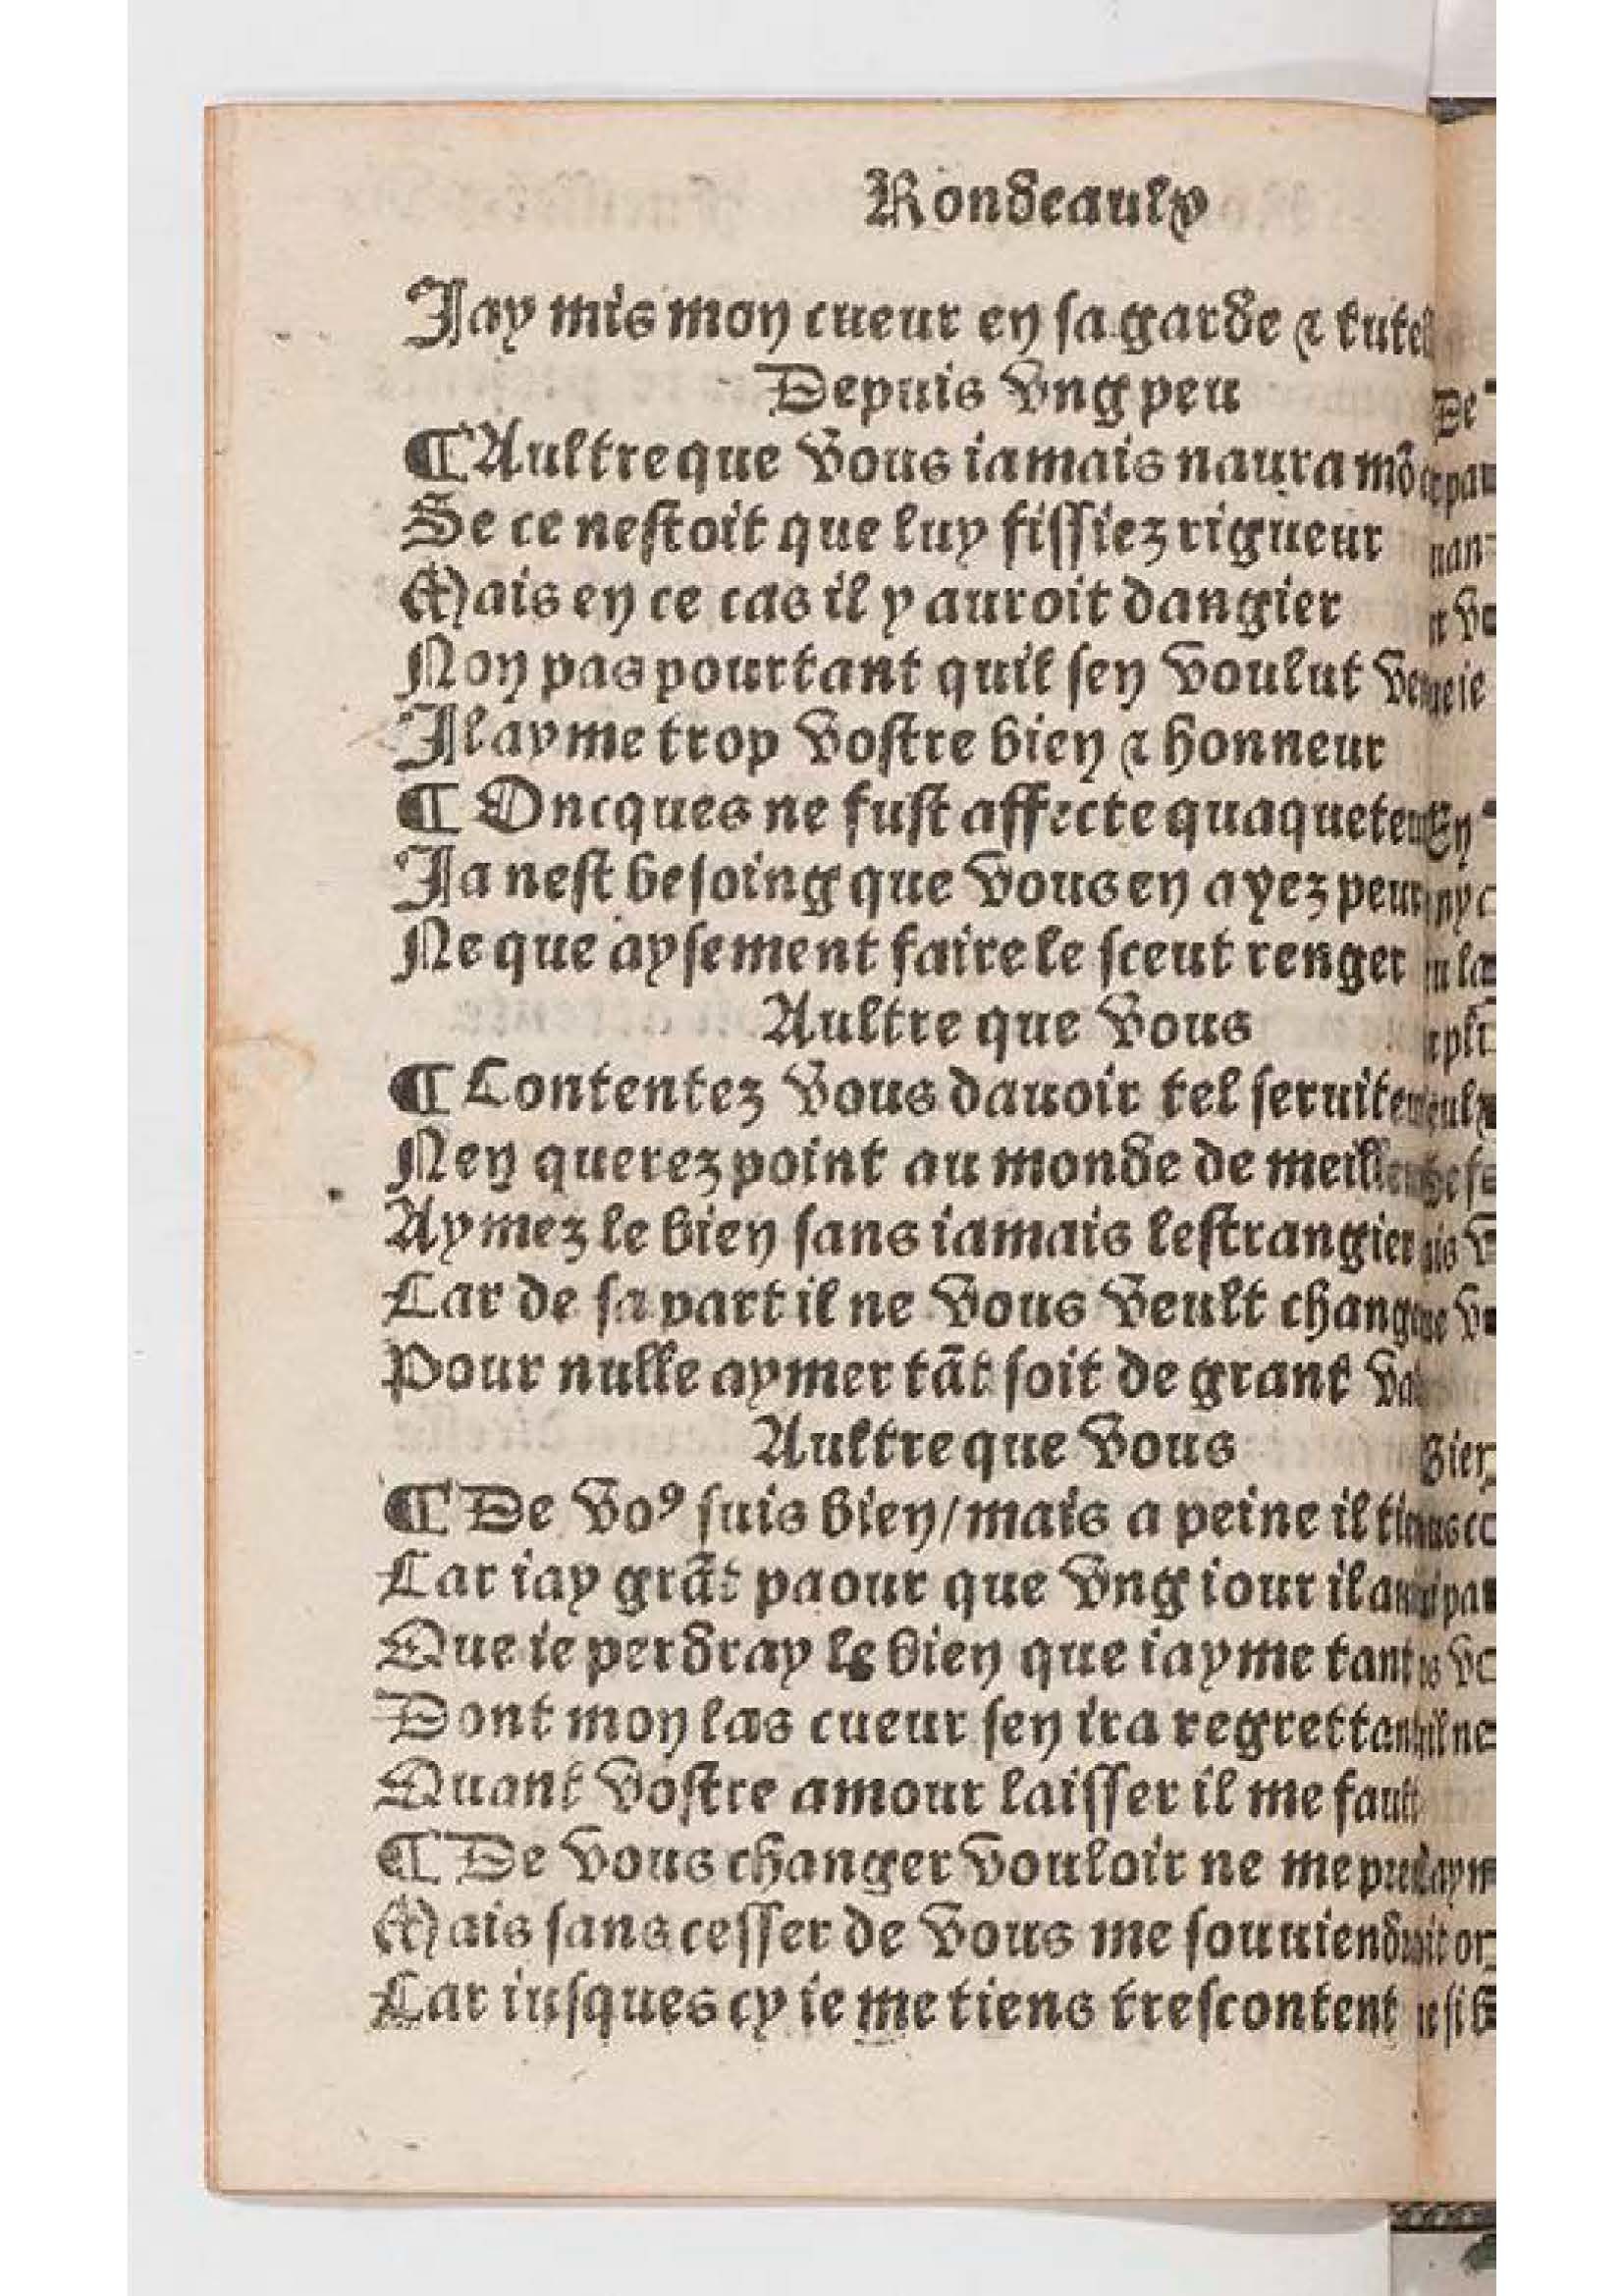 Rondeaulx
Jay mis mon cueur en sa garde & tutel
Depuis vng peu
¶ Aultre que vous iamais naura mõ
Se ce nestoit que luy fissiez rigueur
Mais en ce cas il y auroit dangier
Non pas pourtant quil sen voulut
Il ayme trop vostre bien & honneur
¶ Oncques ne fust affecte
Ja nest besoing que vous en ayez peur
Ne que aysement faire le sceut renger
Aultre que vous
¶ Contentez vous dauoir tel
Nen querez point au monde de
Aymez le bien sans iamais lestrangier
Car de sa part il ne vous veult
Pour nulle aymer tãt soit de grant
Aultre que vous
¶ De voꝰ suis bien/mais a peine il
Car iay grãt paour que vng iour il
Que ie perdray le bien que iayme tant
Dont mon las cueur sen ira regrettant
Quant vostre amour laisser il me fault
¶ De vous changer vouloir ne me
Mais sans cesser de vous me
Car iusques cy ie me tiens trescontent